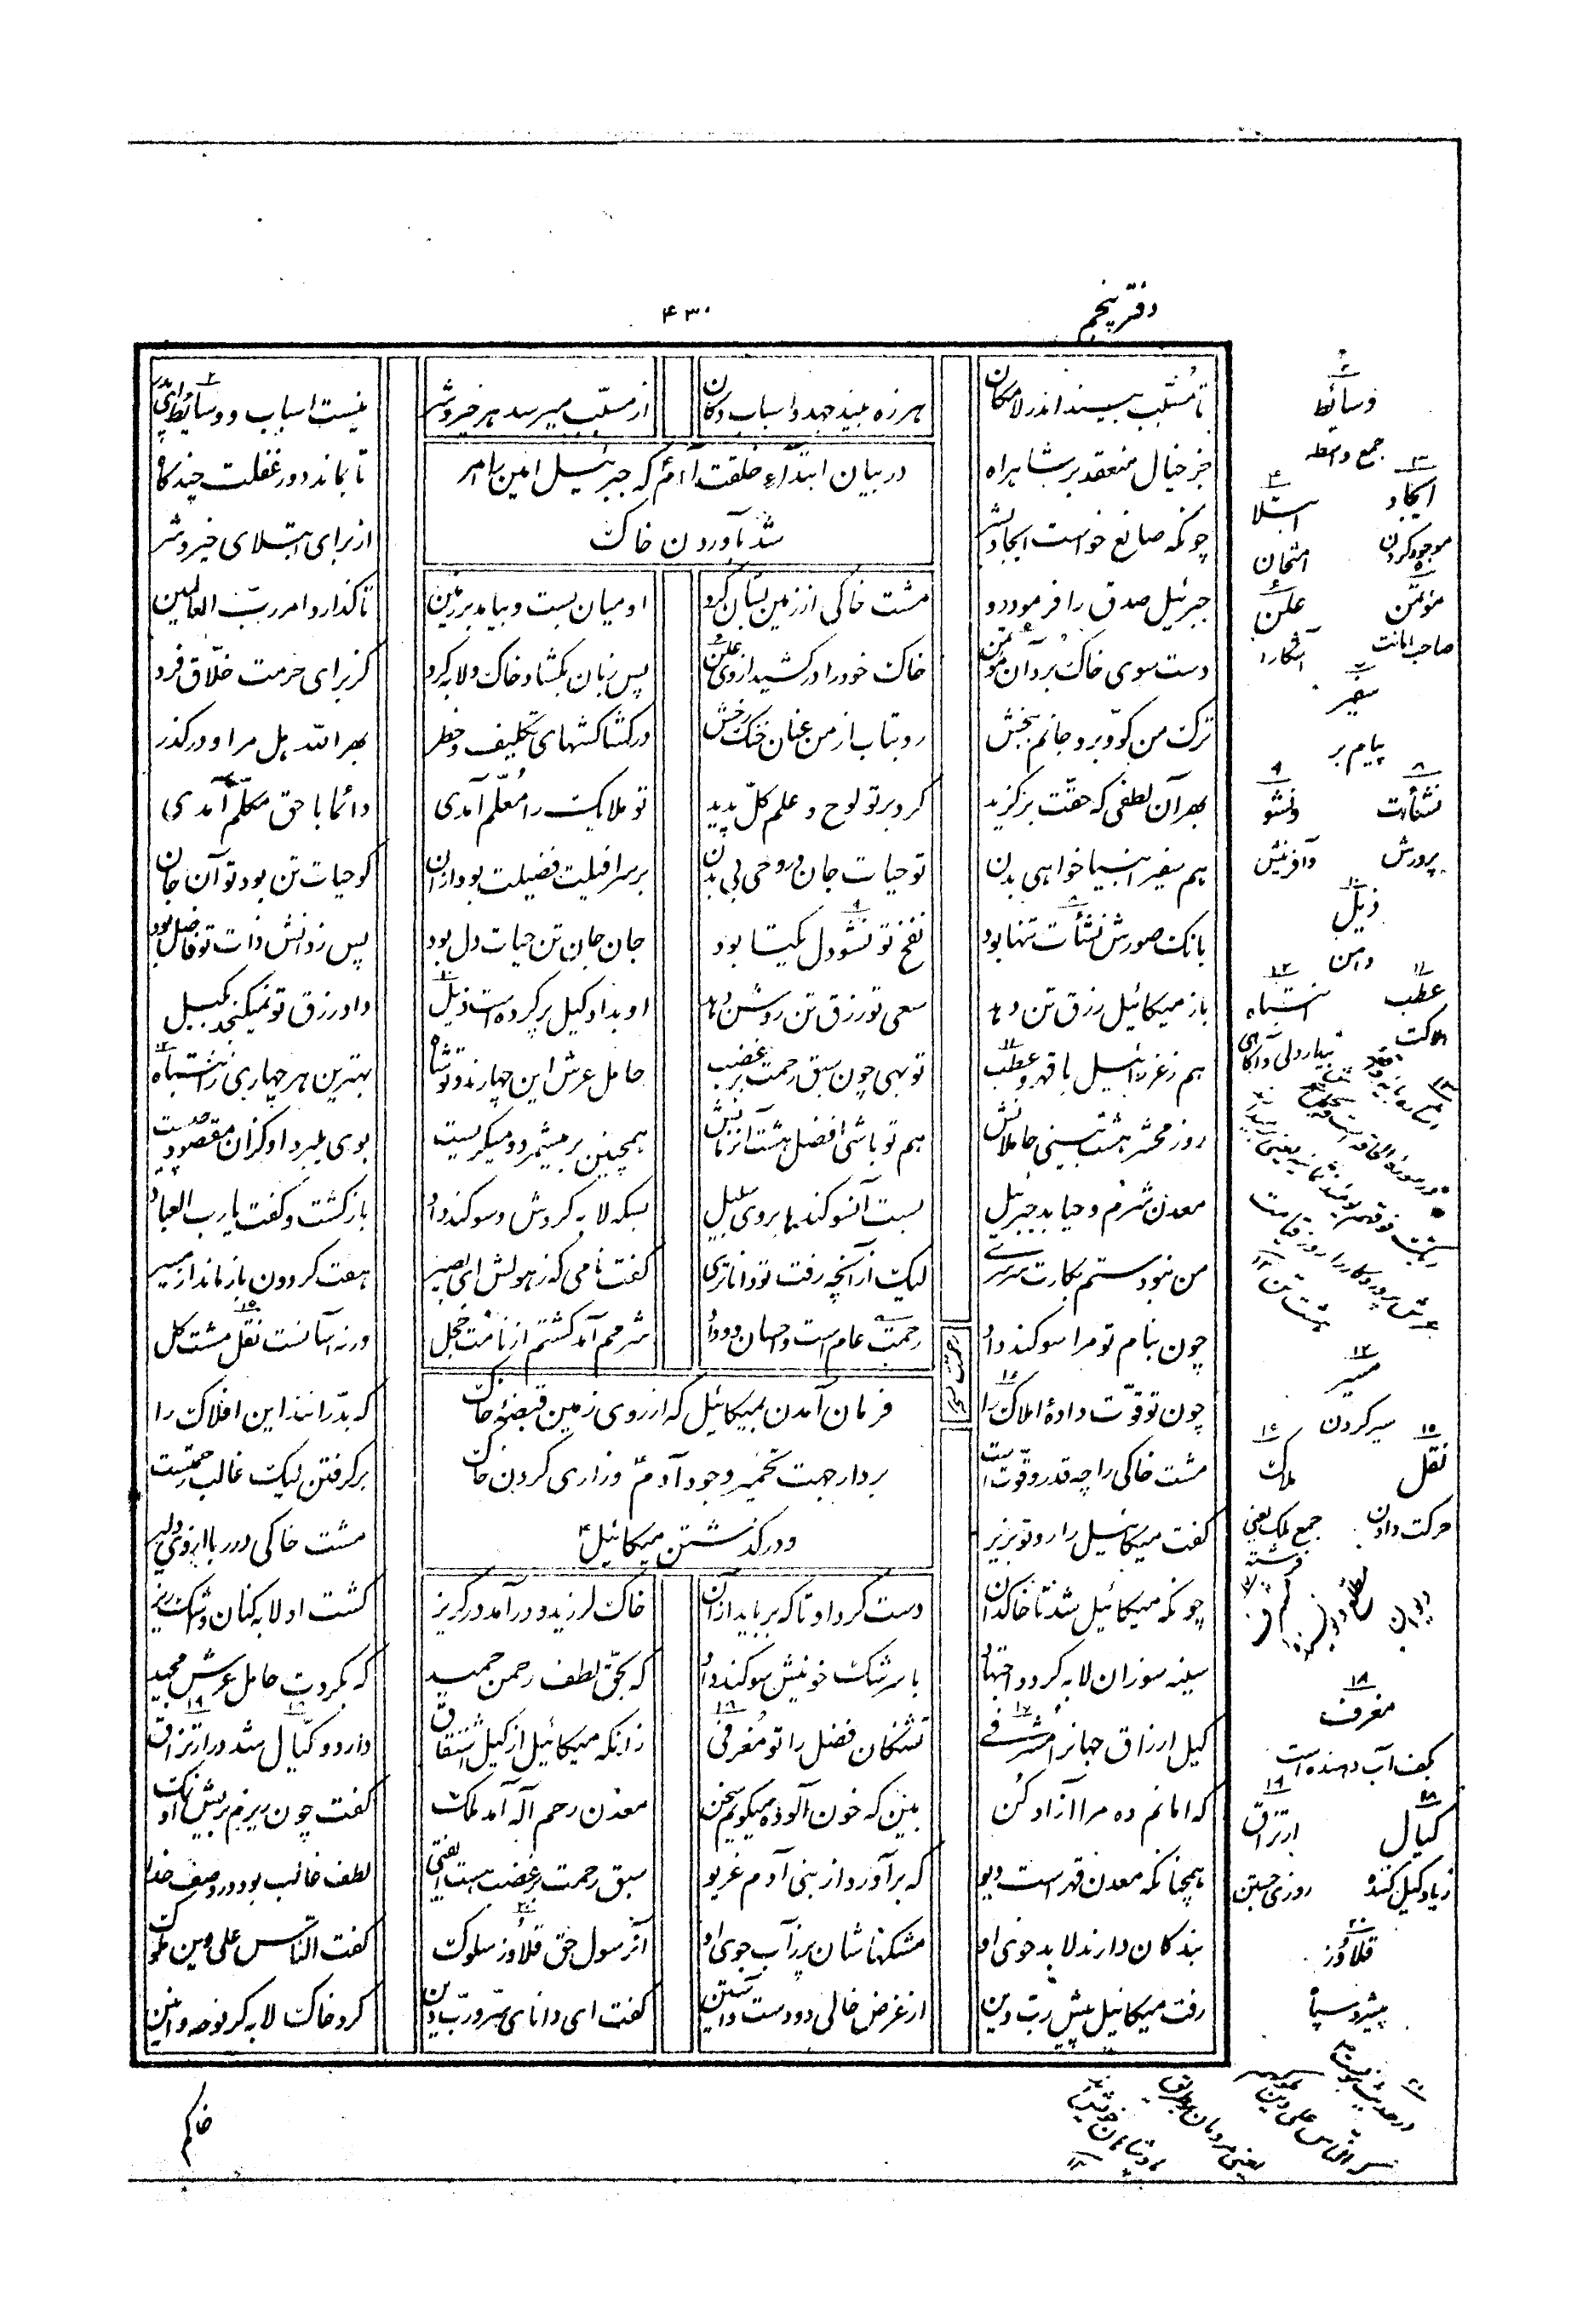 دفتر پنجم
۴۳۰
تا مسبّب بیند اندر لا مکان
هرزه بیند جهد و اسباب دکان
از مسبّب میرسد هر خیر و شر
نیست اسباب و وسائط ای پدر
جز خیال منعقد بر شاهراه
تا بماند دور غفلت چند گاه
در بیان ابتداء خلقت آدم که جبرئیل امین را امر
شد بآوردن خاک
چونکه صانع خواست ایجاد بشر
از برای ابتلای خیر و شر
جبرئیل صدق را فرمود رو
مشت خاکی از زمین بستان گرو
او میان بست و بیامد بر زمین
تا گذارد امر ربّ العالمین
دست سوی خاک برد آن مؤتمن
خاک خود را در کشید از وی علن
پس زبان بگشاد خاک و لابه کرد
کز برای حرمت خلّاق فرد
ترک من گو و برو جانم ببخش
رو بتاب از من عنان خنگ رخش
در کشاکشهای تکلیف و خطر
بهر الله هل مرا و در گذر
بهر آن لطفی که حقّت بر گزید
کرد بر تو لوح و علم کلّ پدید
تو ملایک را معلّم آمدی
دائما با حق مکلّم آمدی
هم سفیر انبیا خواهی بدن
تو حیات جان و روحی نی بدن
بر سرافیلت فضیلت بود از آن
کو حیات تن بود تو آن جان
بانگ صورش نشأت تنها بود
نفخ تو نشو دل یکتا بود
جان جان تن حیات دل بود
پس ز دانش ذات تو فاضل بود
باز میکائیل رزق تن دهد
سعی تو رزق تن روشن دهد
او بداد کیل پر کرده است ذیل
داد رزق تو نمیگنجد بکیل
هم ز عزرائیل با قهر و عطب
تو بهی چون سبق رحمت بر غضب
حامل عرش این چهارند و تو شاه
بهترین هر چهاری ز انتباه
روز محشر هشت بینی حاملانش
هم تو باشی افضل هشت آنزمانش
همچنین بر میشمرد و میگریست
بوی میبرد او کزان مقصود چیست
معدن شرم و حیا بد جبرئیل
بست آن سوگندها بر وی سبیل
بسکه لابه کردش و سوگند داد
بازگشت و گفت یا رب العباد
من نبودستم بکارت سرسری
لیک از آنچه رفت تو داناتری
گفت نامی که ز هولش ای بصیر
هفت گردون باز ماند از مسیر
چون بنام تو مرا سوگند داد
رحمت عام است و احسان و وداد
شرمم آمد گشتم از نامت خجل
ورنه آسانست نقل مشت گل
چون تو قوّت دادهٔ املاک را
که بدرّانند این افلاک را
مشت خاکی را چه قدر و قوّت است
بر گرفتن لیک غالب رحمتست
فرمان آمدن بمیکائیل که از روی زمین قبضهٔ خاک
بردار جهت تخمیر وجود آدم ع و زاری کردن خاک
و در گذشتن میکائیل ع
گفت میکائیل را رو تو بزیر
مشت خاکی در ربا از وی دلیر
چونکه میکائیل شد تا خاکدان
دست کرد او تا که برباید از آن
خاک لرزید و در آمد در گریز
گشت او لابه کنان و اشک ریز
سینه سوزان لابه کرد و اجتهاد
با سرشک خونینش سوگند داد
که بحقّ لطف رحمن حمید
که بکردت حامل عرش مجید
کیل ارزاق جهانرا مشرفی
تشنگان فضل را تو مغرفی
زانکه میکائیل از کیل اشتقاق
دارد و کیّال شد در ارتزاق
که امانم ده مرا آزاد کن
بین که خون آلوده میگویم سخن
معدن رحم اله آمد ملک
گفت چون ریزم بر آن ریش این نمک
همچنانکه معدن قهر است دیو
که بر آورد از بنی آدم غریو
سبق رحمت بر غضب هست ای فتی
لطف غالب بود در وصف خدا
بندگان دارند لابد خوی او
مشکهاشان پر ز آب جوی او
آن رسول حق قلاوز سلوک
گفت الناس علی دین ملوک
رفت میکائیل پیش ربّ دین
از غرض خالی دو دست و آستین
گفت ای دانای سرّ و ربّ دین
کرد خاک لابه گر نوحه و انین
۲
وسائط
جمع واسطه
۳
ایجاد
موجود کردن
۴
ابتلا
امتحان
۵
مؤتمن
صاحب امانت
۶
علن
آشکارا
۷
سفیر
پیام بر
۸
نشأت
پرورش
۹
و نشو
و آفرینش
۱۰
ذیل
دامن
۱۱
عطب
هلاکت
۱۲
انتباه
بیداردلی و آگاهی
۱۳
۱۴
مسیر
سیر کردن
۱۵
نقل
حرکت دادن
۱۶
ملک
جمع ملک یعنی
فرشته
۱۸
مغرف
بکف آب دهنده است
کیال
زیاد کیل کننده
۱۹
ارتزاق
روزی جستن
۲۰
قلاوز
پیشرو سپاه
الناس علی دین ملوکهم
خاکم